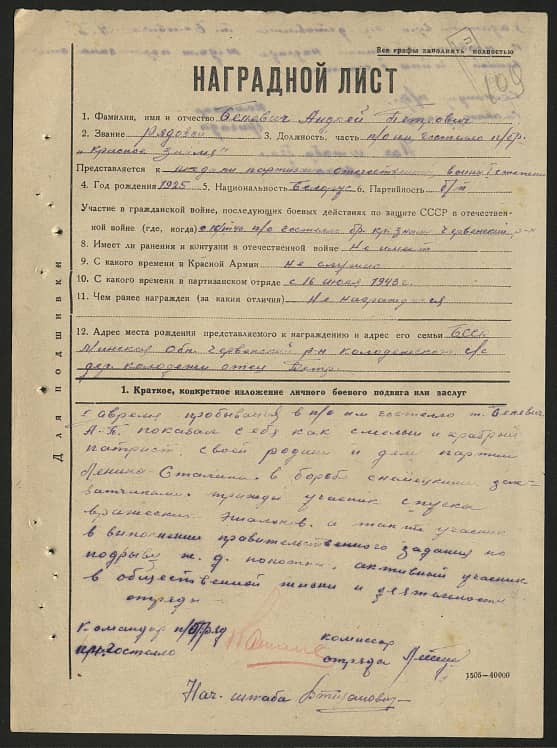 Все графы заполнять полностью
109
НАГРАДНОЙ ЛИСТ
1. Фамилия, имя и отчество Беневич Андрей Петрович
2. Звание рядовой 3. Должность, часть п/о им гостелло п/бр.
„Красное знамя"
Представляется к медали партизана отечественной войны степени
4. Год рождения 1925 5. Национальность Белорус 6. Партийность б/п
Участие в гражданской войне, последующих боевых действиях по защите СССР в отечествен-
ной войне (где, когда) п/о гостелло бр. кр. знамя Червенский р-н
8. Имеет ли ранения и контузии в отечественной войне Не имеет
9. С какого времени в Красной Армии не служил
10. С какого времени в партизанском отряде с 16 июня 1943 г.
11. Чем ранее награжден (за какия отличия) Не награждался
12. Адрес места рождения представляемого к награждению и адрес его семьи БССР
Минская Обл. Червенский р-н колодежский с/с
дер. колодежи отец Петр.
Для подшивки
1. Краткое, конкретное изложение личного боевого подвига или заслуг
время пребывания в п/о им гостелло т. Беневич
А.П. показал себя как смелый и храбрый
патриот своей родины и дем партии
Ленина-Сталина. в борьбе снемецкими зах-
ватчиками. трижды участник спуска
вражеских эшалонов. а также участник
в выполнении правительственного задания по
подрыву ж.д. полотна. активный участник
в общественной жизни и деятельности
отряда
Командор п/отряд
им. Гостелло
комиссар
отряда
1505—40000
Нач. штаба